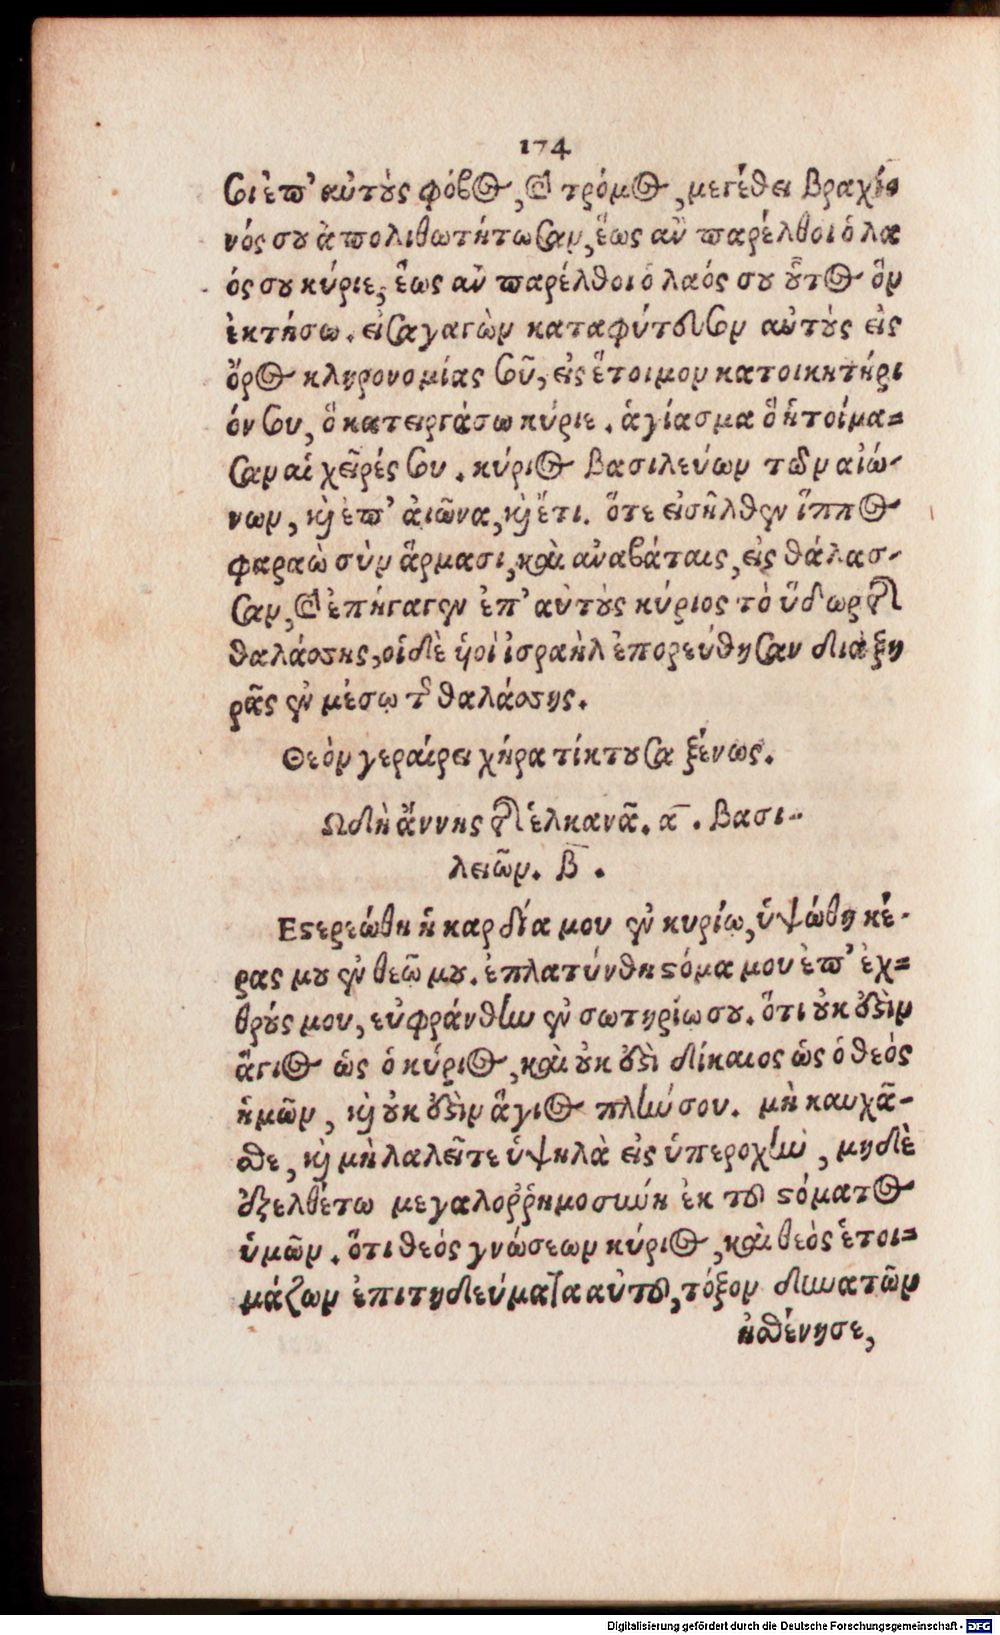 174
σοι ἐπ' αὐτοὺς φόβος, καὶ τρόμος, μεγέθει βραχίο
νός σου ἀπολιθωτήτωσαν, ἕως ἂν παρέλθοι ὁ λα
ός σου κύριε, ἕως ἂν παρέλθοι ὁ λαός σου οὗτος ὃν
ἐκτήσω. εἰσαγαγὼν καταφύτευσον αὐτοὺς εἰς
ὄρος κληρονομίας σοῦ, εἰς ἕτοιμον κατοικητήρι
όν σου, ὃ κατειργάσω κύριε. ἁγίασμα ὃ ἡτοίμα=
σαν αἱ χεῖρές σου. κύριος βασιλεύων τῶν αἰώ-
νων, καὶ ἐπ' ἀιῶνα, καὶ ἔτι. ὅτε εἰσῆλθεν ἵππος
φαραὼ σὺν ἅρμασι, καὶ ἀναβάταις, εἰς θάλασ-
σαν, καὶ ἐπήγαγεν ἐπ' αὐτοὺς κύριος τὸ ὕδωρ τῆς
θαλάσσης, οἱ δὲ ὑιοὶ ἰσραὴλ ἐπορεύθησαν διὰ ξη
ρᾶς ἐν μέσῳ τῆς θαλάσσης.
Θεὸν γεραίρει χήρα τίκτουσα ξένως.
Ωδὴ ἄννης τῆς ἑλκανᾶ. α. βασι-
λειῶν. β.
Εστερεώθη ἡ καρδία μου ἐν κυρίῳ, ὑψώθη κέ-
ρας μου ἐν θεῷ μου. ἐπλατύνθη στόμα μου ἐπ' ἐχ=
θρούς μου, εὐφράνθην ἐν σωτηρίῳ σου. ὅτι οὐκ ἔστιν
ἅγιος ὡς ὁ κύριος, καὶ οὐκ ἔστι δίκαιος ὡς ὁ θεὸς
ἡμῶν, καὶ οὐκ ἔστιν ἅγιος πλήν σου. μὴ καυχᾶ-
σθε, καὶ μὴ λαλεῖτε ὑψηλὰ εἰς ὑπεροχήν, μηδὲ
ἐξελθέτω μεγαλοῤῥημοσύνη ἐκ τοῦ στόματος
ὑμῶν. ὅτι θεὸς γνώσεων κύριος, καὶ θεὸς ἑτοι=
μάζων ἐπιτηδεύματα αὐτοῦ, τόξον δυνατῶν
ἠσθένησε,
Digitalisierung gefördert durch die Deutsche Forschungsgemeinschaft - DFG